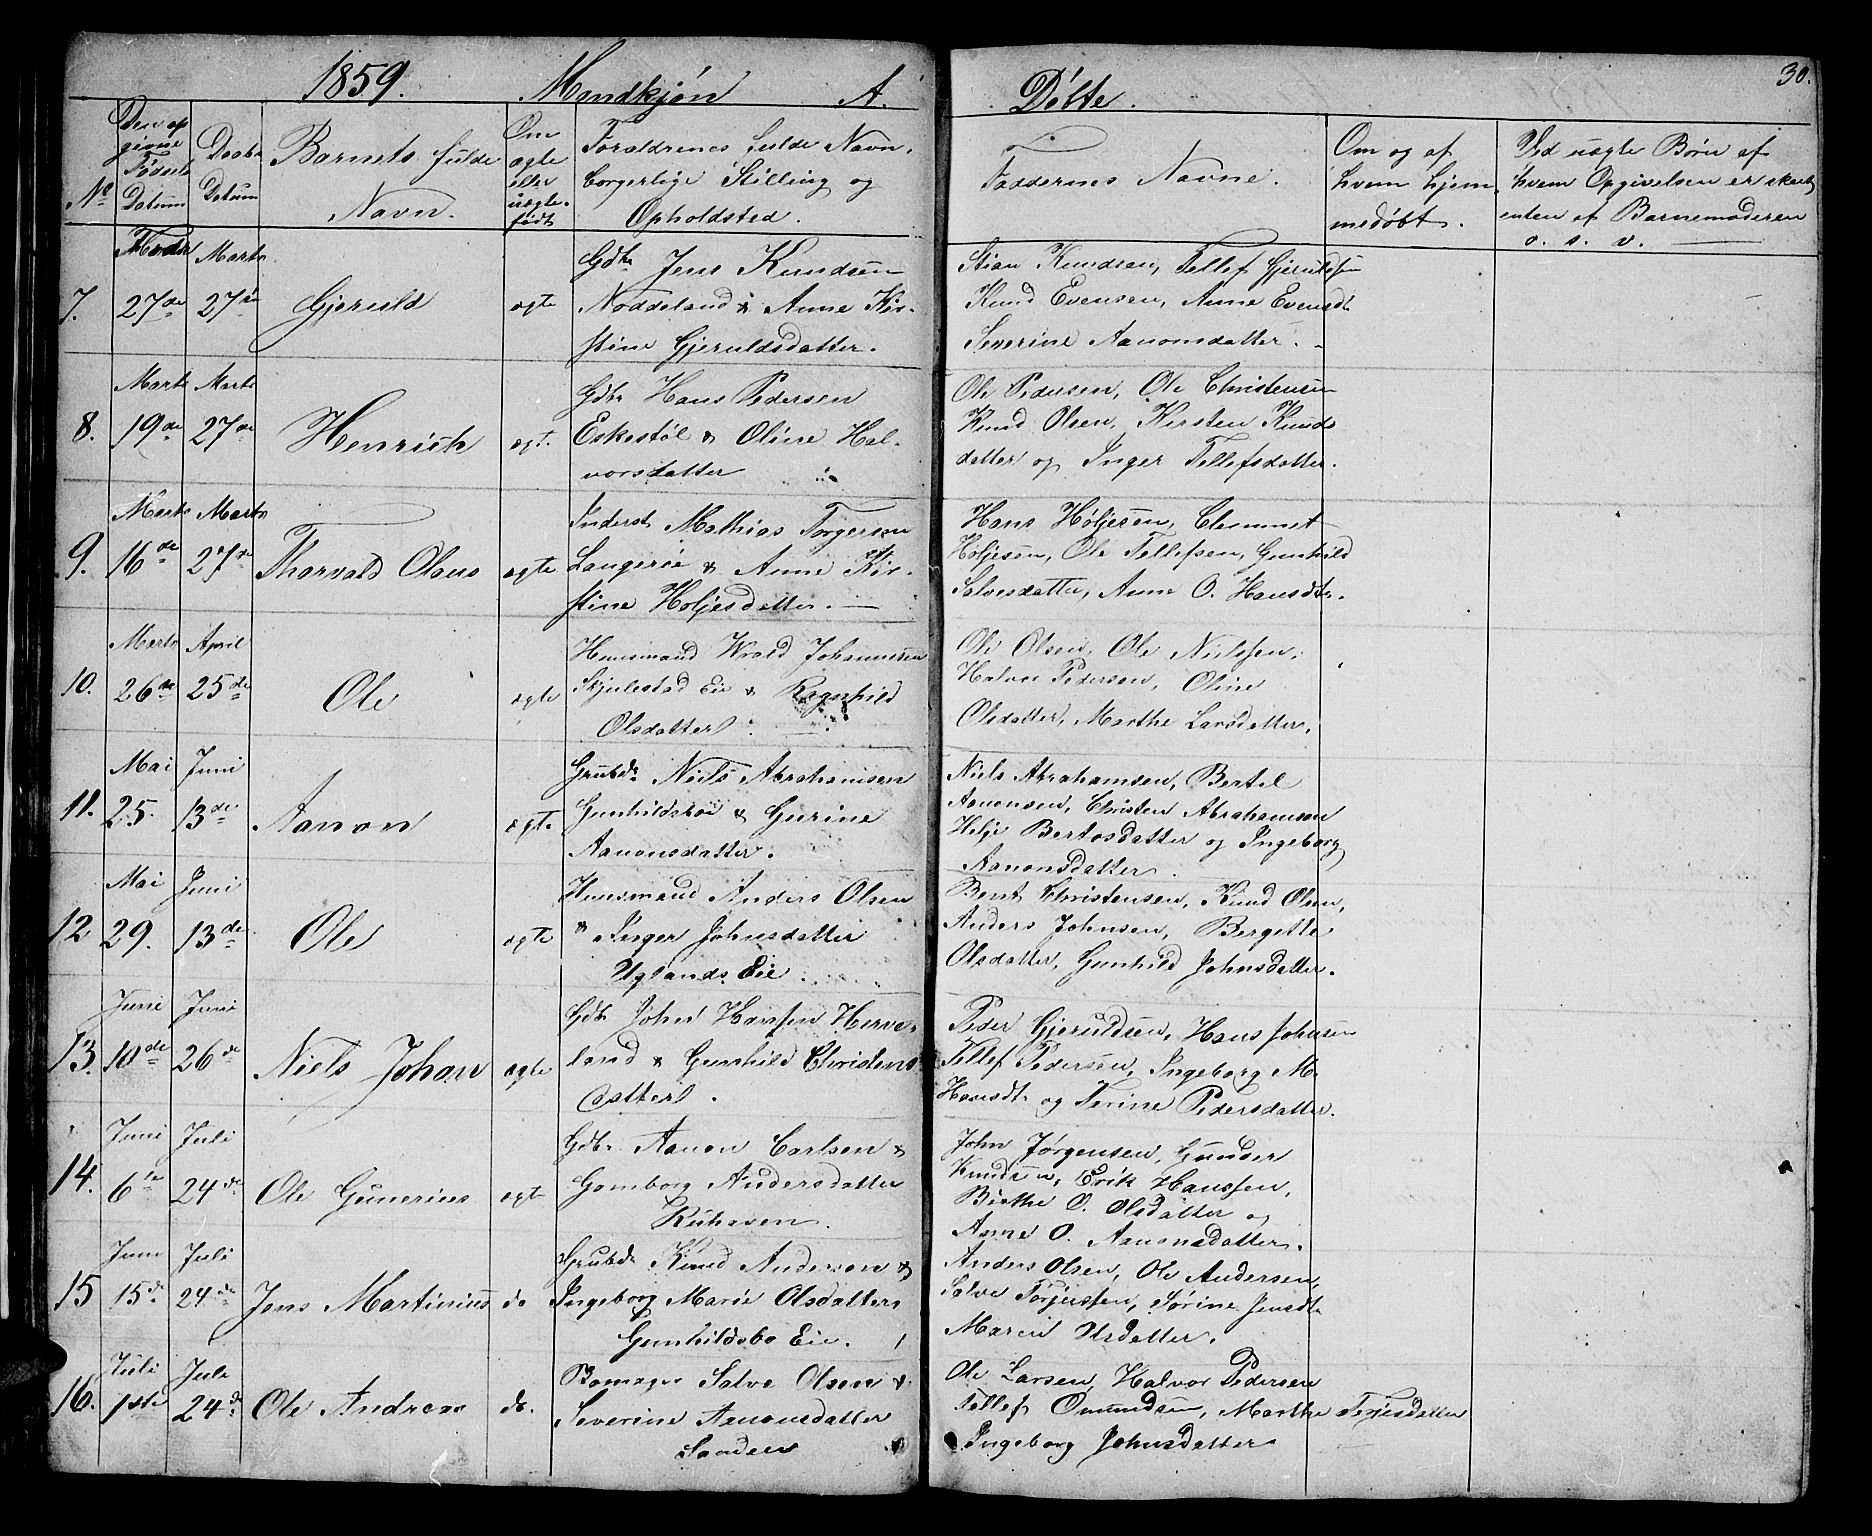 1859. Mandkjøn A.
Døbte. 30.
No
Den op
givne
Fødsels
Datum
Daabs
Datum
Barnets fulde
Navn.
Om
ægte
eller
uægte
født
Forældrenes fulde Navn,
borgerlige Stilling og
Opholdsted.
Faddernes Navne.
Om og af
hvem hjem-
medøbt.
Ved uægte Børn af
hvem Opgivelsen er skeet,
enten af Barnemoderen
o. s. v.
7. 27de Marts 27de Gjeruld ægte
Gdbr Jens Knudsen
Noddeland & Anne Kir-
stine Gjeruldsdatter.
Stian Knudsen, Tellef Gjeruldsen
Knud Evensen, Anne Evensdt
Severine Aanonsdatter.
8. Marts 19de Marts 27de Henrich ægt.
Gdbr Hans Pedersen
Eskestøl & Oline Hal-
vorsdatter
Ole Pedersen, Ole Christensen
Knud Olsen, Kirsten Knuds
datter og Inger Tellefsdatter.
9. Marts 16de Marts 27de Thorvald Olaus ægte
Inderst Mathias Torgersen
Langerøe & Anne Kir-
stine Holjesdatter.
Hans Høljesen, Clemmet
Holjesen, Ole Tellefsen, Gunhild
Salvesdatter, Anne O. Hansdtr.
10. Marts 26de April 25de Ole ægte
Huusmand Wrold Johannesen
Skjulestad Eie & Ragnhild
Olsdatter
Ole Olsen, Ole Nielssen,
Halvor Pedersen, Oline
Olsdatter, Marthe Larsdatter.
11. Mai 25. Juni 13de Aanon ægte
Grubdr Niels Abrahamsen
Gunhildsboe & Gurine
Aanonsdatter.
Niels Abrahamsen, Bertel
Aanonsen, Christen Abrahamsen
Helje Bertosdatter og Ingeborg
Aanonsdatter.
12 Mai 29. Juni 13de Ole ægte
Huusmand Anders Olsen
& Inger Johnsdatter
Uglands Eie
Bent Christensen, Knud Olsen,
Anders Johnsen, Bergette
Olsdatter, Gunhild Johnsdatter.
13. Juni 10de Juni 26de Niels Johan ægte
Gdbr John Hanssen Herve-
land & Gunhild Christens
datter.
Peder Gjeruldsen, Hans Johnsen
Tellef Pedersen, Ingeborg M.
Hansdtr og Terine Pedersdatter.
14. Juni 6te Juli 24de Ole Gunerius ægt
Gdbr Aanon Carlsen &
Gomborg Andersdatter
John Jørgensen, Gunder
Knudsen, Erik Hanssen,
Birthe O. Olsdatter og
Anne O. Aanonsdatter.
15 Juni 15de Juli 24de Jens Martinius do
Grubdr Knud Anderson &
Ingeborg Marie Olsdatter
Gunhildsbo Eie.
Anders Olsen, Ole Andersen,
Salve Torjussen, Sørine Jensdt
Maren Olsdatter.
16. Juli 1ste Juli 24d Ole Andreas do.
Salve Olsen &
Severine Aanonsdatter
Sanden
Ole Larsen, Halvor Pedersen
Tellef Omundsen, Marthe Terjesdatter
Ingeborg Johnsdatter